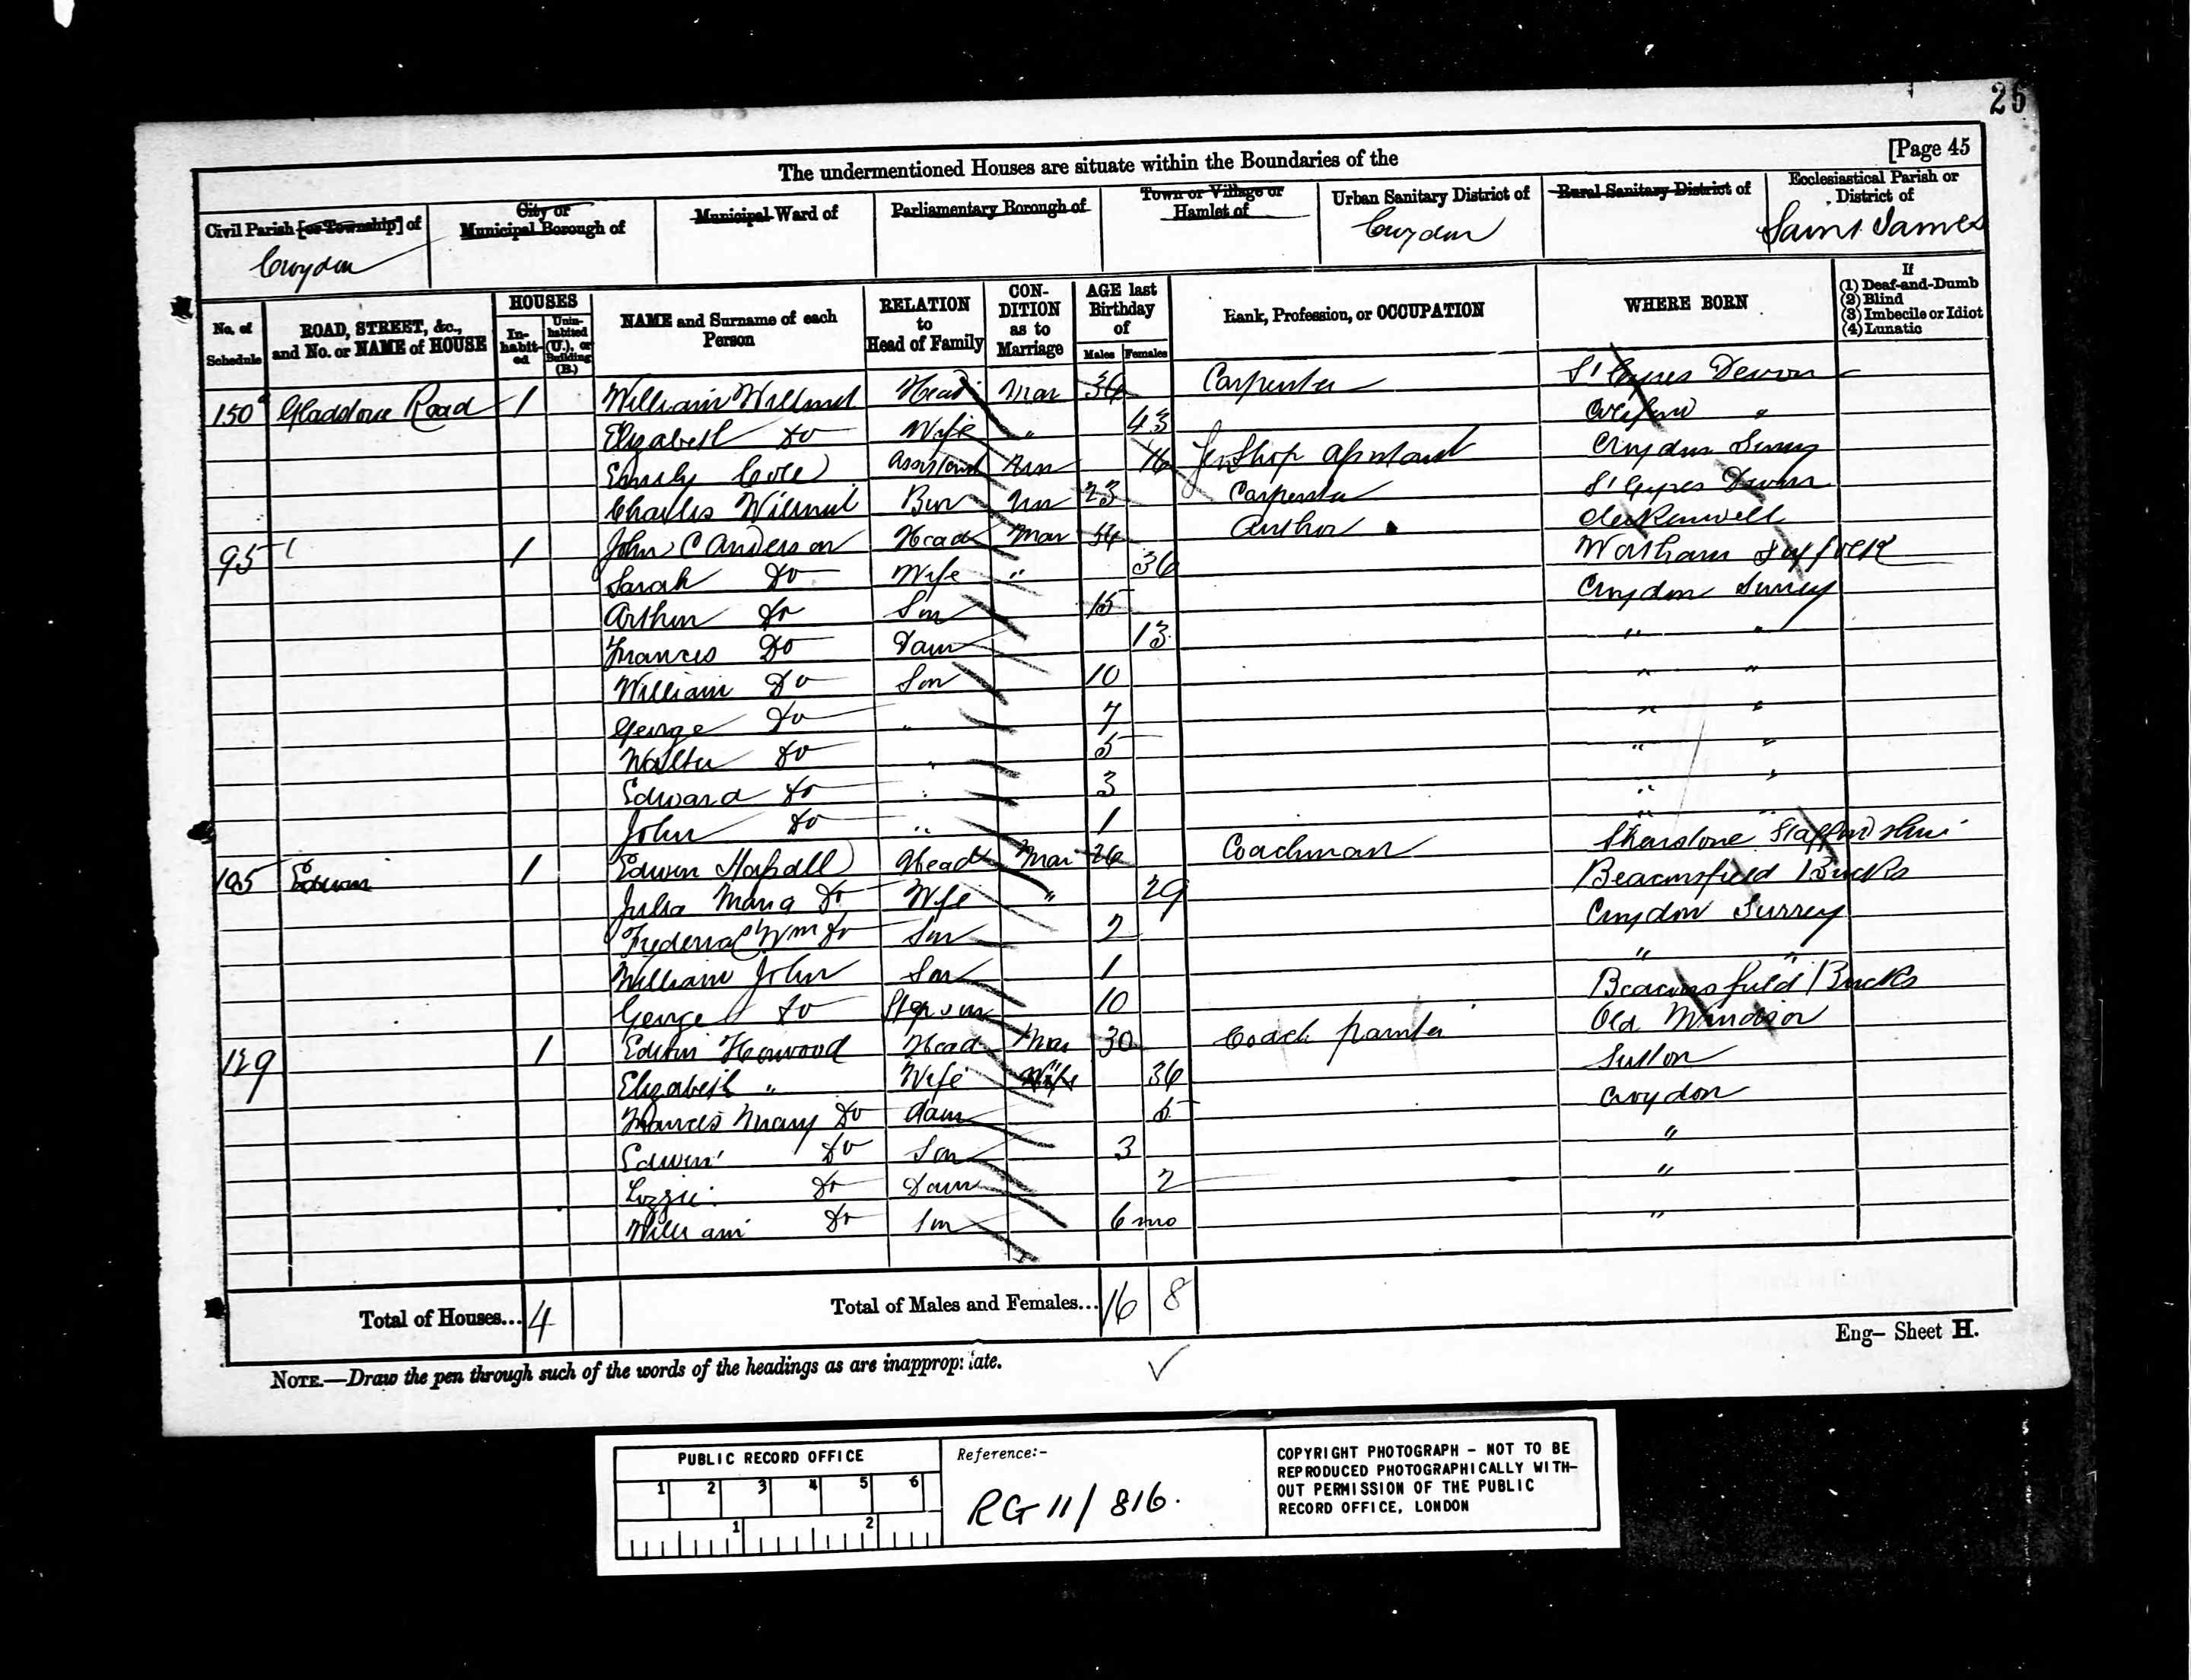 26
[Page 45
The undermentioned Houses are situate within the Boundaries of the
Civil Parish [or Township] of
Croydon
City or
Municipal Borough of
Municipal Ward of
Parliamentary Borough of
Town or Village or
Hamlet of
Urban Sanitary District of
Croydon
Rural Sanitary District of
Ecclesiastical Parish or
District of
Saint James
No. of
Schedule
ROAD, STREET, &c.,
and No. or NAME of HOUSE
HOUSES
In-
habit-
ed
Unin-
habited
(U.), or
Building
(B.)
NAME and Surname of each
Person
RELATION
to
Head of Family
CON-
DITION
as to
Marriage
AGE last
Birthday
of
Males Females
Rank, Profession, or OCCUPATION
WHERE BORN
If
(1) Deaf-and-Dumb
(2) Blind
(3) Imbecile or Idiot
(4) Lunatic
150 Gladstone Road 1 William Head Mar Carpenter Devon
Elizabeth Do Wife " 43 "
Emily Assistant 16 Croydon Surrey
Charles 23 Carpenter Devon
95 1 John C Anderson Head Mar 34 Author Clerkenwell
Sarah Do Wife " 36 Wortham Suffolk
Arthur Do Son 15 Croydon Surrey
Frances Do Daur 13 " "
William Do Son 10 " "
George Do " 7 " "
Walter Do " 5 " "
Edward Do " 3 " "
John Do " 1 " "
195 Edwin 1 Edwin Head Mar 26 Coachman Staffordshire
Julia Maria Do Wife " 29 Beaconsfield Bucks
Frederick Wm Do Son 2 Croydon Surrey
William John Son 1 " "
George Do Stepson 10 Beaconsfield Bucks
129 1 Edwin Head Mar 30 Coach painter Old Windsor
Elizabeth " Wife Wife 36 Sutton
Frances Mary Do daur 5 Croydon
Edwin Do Son 3 "
Lizzie Do Daur 2 "
William Do Son 6 mo "
Total of Houses... 4
Total of Males and Females... 16 8
Eng- Sheet H.
NOTE.—Draw the pen through such of the words of the headings as are inappropriate.
PUBLIC RECORD OFFICE
1 2 3 4 5 6
1 2
Reference:-
RG 11/816.
COPYRIGHT PHOTOGRAPH - NOT TO BE
REPRODUCED PHOTOGRAPHICALLY WITH-
OUT PERMISSION OF THE PUBLIC
RECORD OFFICE, LONDON